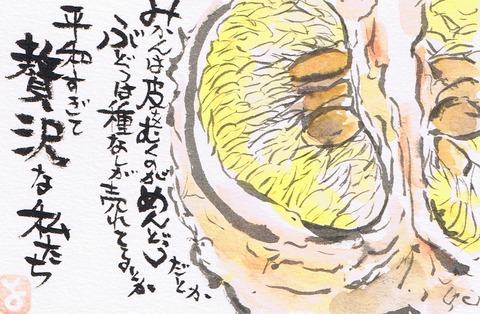 みかんは皮をむくのがめんどうだとか
ぶどうは種なしが売れてるとか
平和すぎて
贅沢な私たち